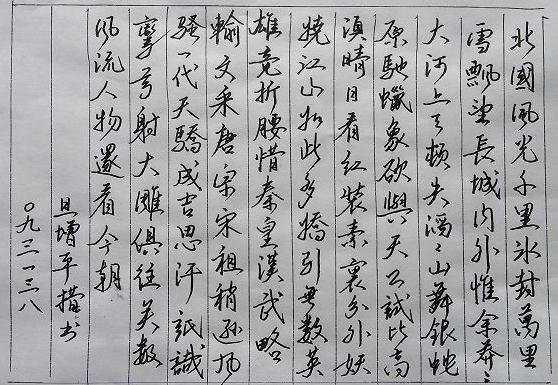 北國風光千里冰封萬里
雪飄望長城内外惟余莽々
大河上下頓失滔々山舞銀蛇
原馳蠟象欲與天公試比高
須晴日看红裝素裹分外妖
娆江山如此多嬌引無數英
雄竞折腰惜秦皇漢武略
輸文采唐宗宋祖稍逊风
騷一代天驕成吉思汗祇識
彎弓射大雕俱往矣數
风流人物還看今朝
旦增平措书
〇九三一三八